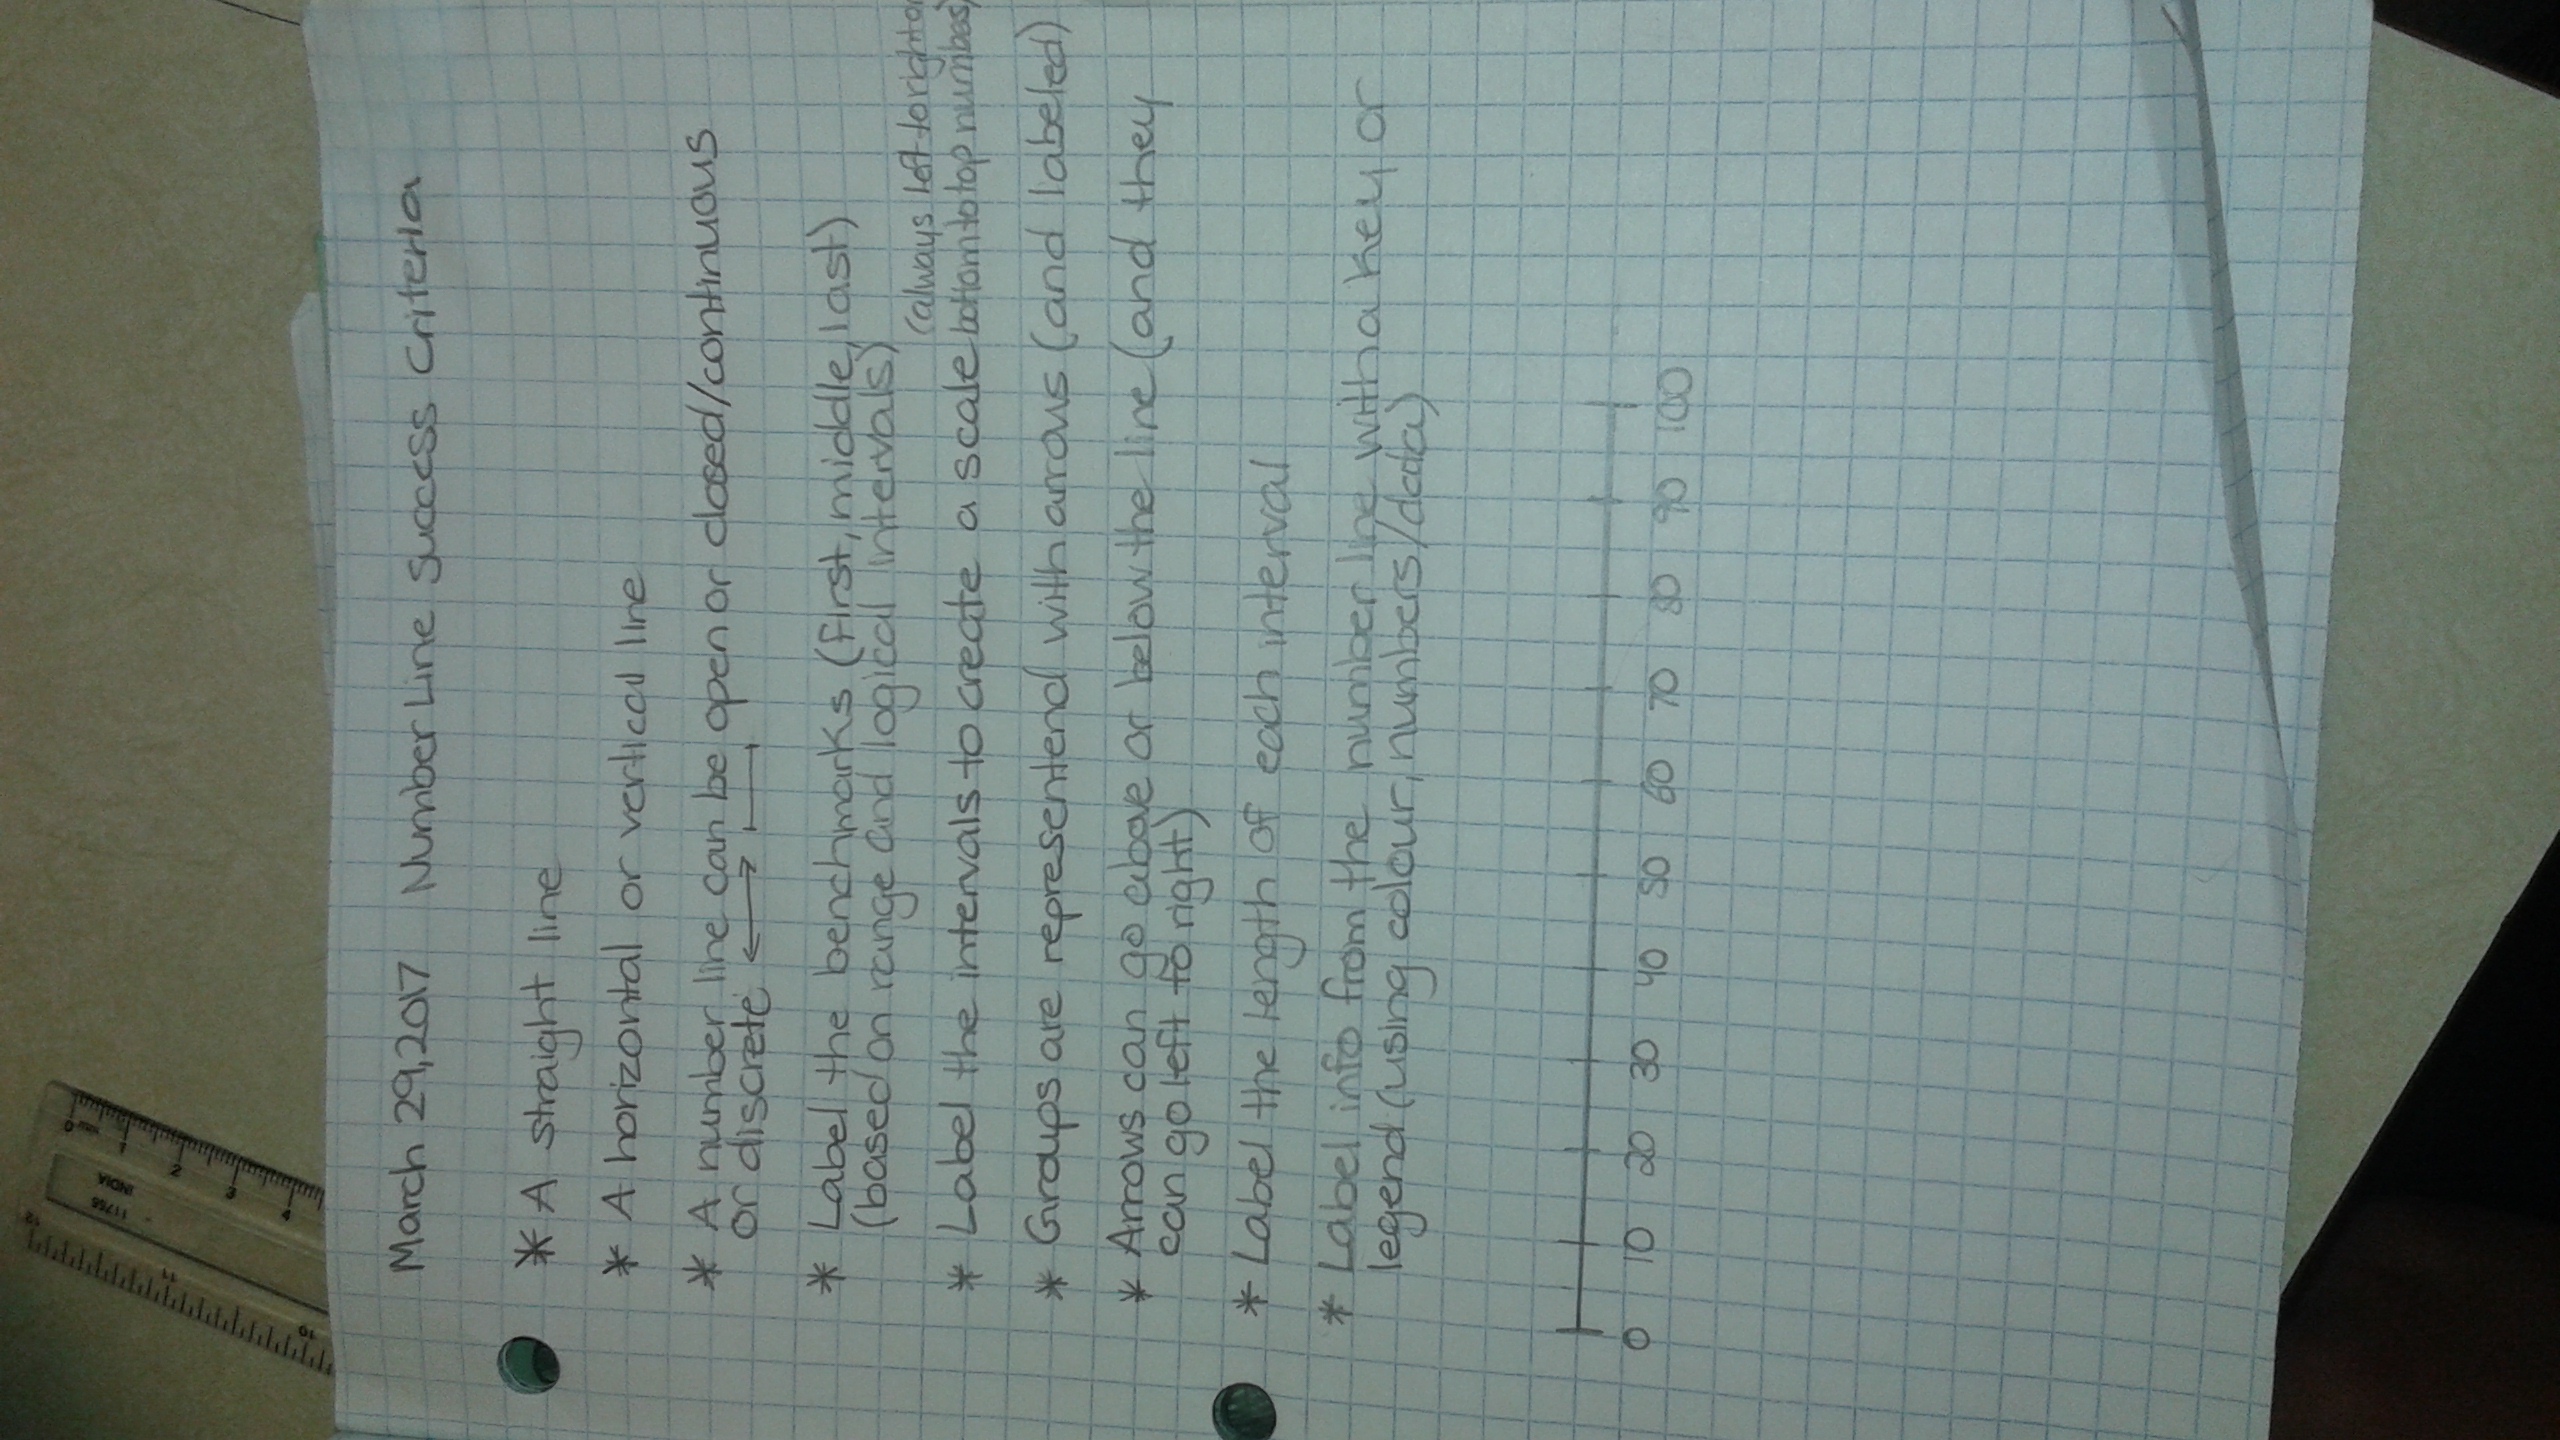 March 29, 2017 Number Line Success Criteria
* A straight line
* A horizontal or vertical line
* A number line can be open or closed/continuous
or discrete
* Label the benchmarks (first, middle, last)
(based on range and logical intervals)
(always left to right or
* Label the intervals to create a scale bottom to top numbers)
* Groups are representend with arrows (and labeled)
* Arrows can go above or below the line (and they
can go left to right)
* Label the length of each interval
* Label info from the number line with a key or
legend (using colour, numbers/data)
0 10 20 30 40 50 60 70 80 90 100
0 mm 1 2 3 4
INDIA
11756
12 11 10